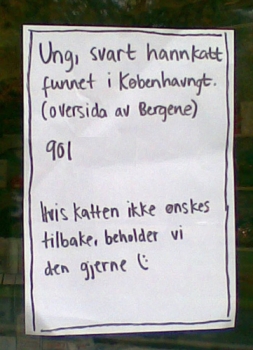 Ung, svart hannkatt
funnet i Københavngt.
(oversida av Bergene)
901
Hvis katten ikke ønskes
tilbake, beholder vi
den gjerne (: